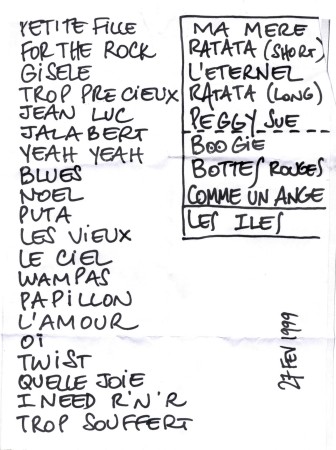 PETITE FILLE
FOR THE ROCK
GISELE
TROP PRECIEUX
JEAN LUC
JALABERT
YEAH YEAH
BLUES
NOEL
PUTA
LES VIEUX
LE CIEL
WAMPAS
PAPILLON
L'AMOUR
OÏ
TWIST
QUELLE JOIE
I NEED R'N'R
TROP SOUFFERT
MA MERE
RATATA (SHORT)
L'ETERNEL
RATATA (LONG)
PEGGY SUE
BOOGIE
BOTTES ROUGES
COMME UN ANGE
LES ILES
27 FEV 1999